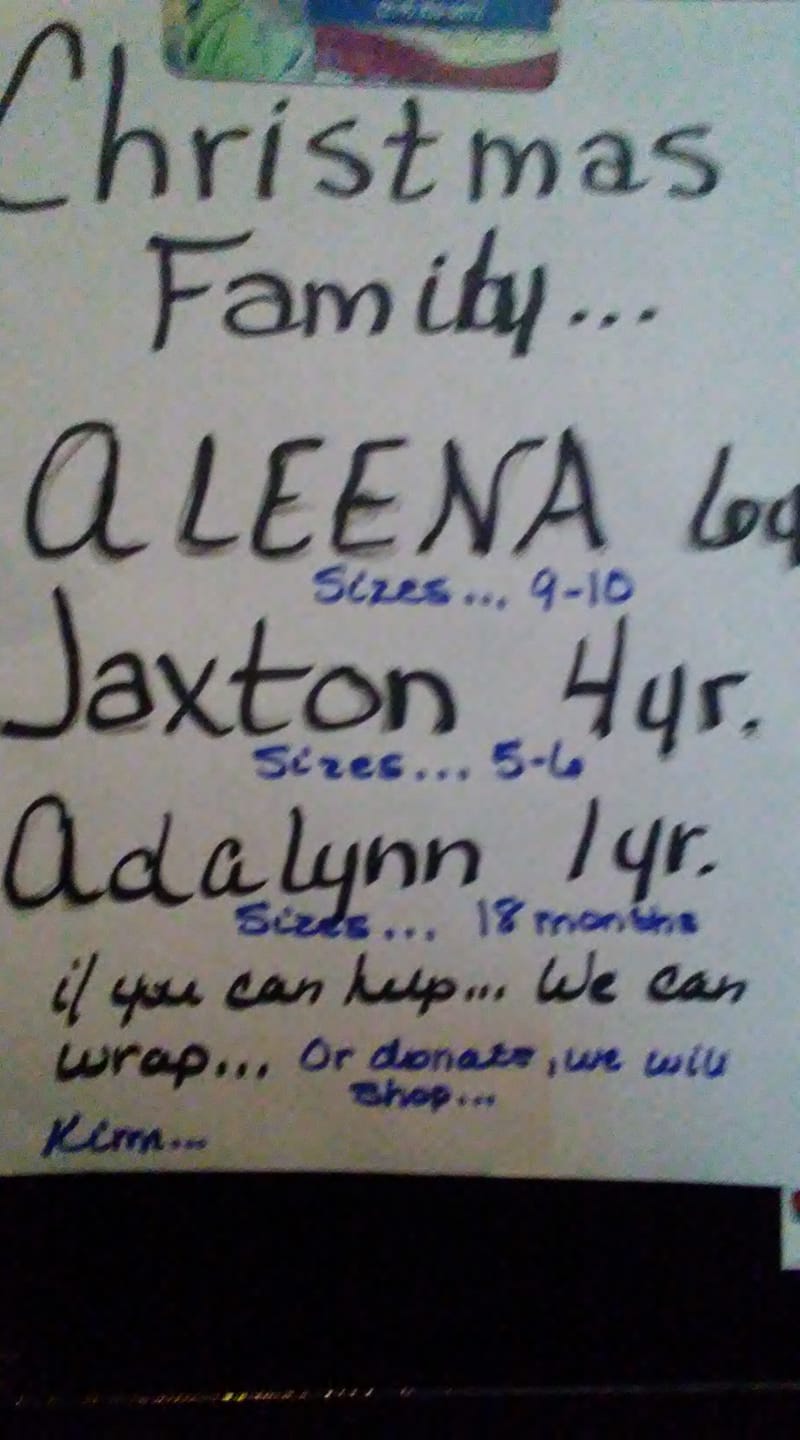 Christmas
Family...
ALEENA 6y
Sizes... 9-10
Jaxton 4yr.
Sizes... 5-6
Adalynn 1yr.
Sizes... 18 months
if you can help... We can
wrap... Or donate, we will
shop...
Kimm...